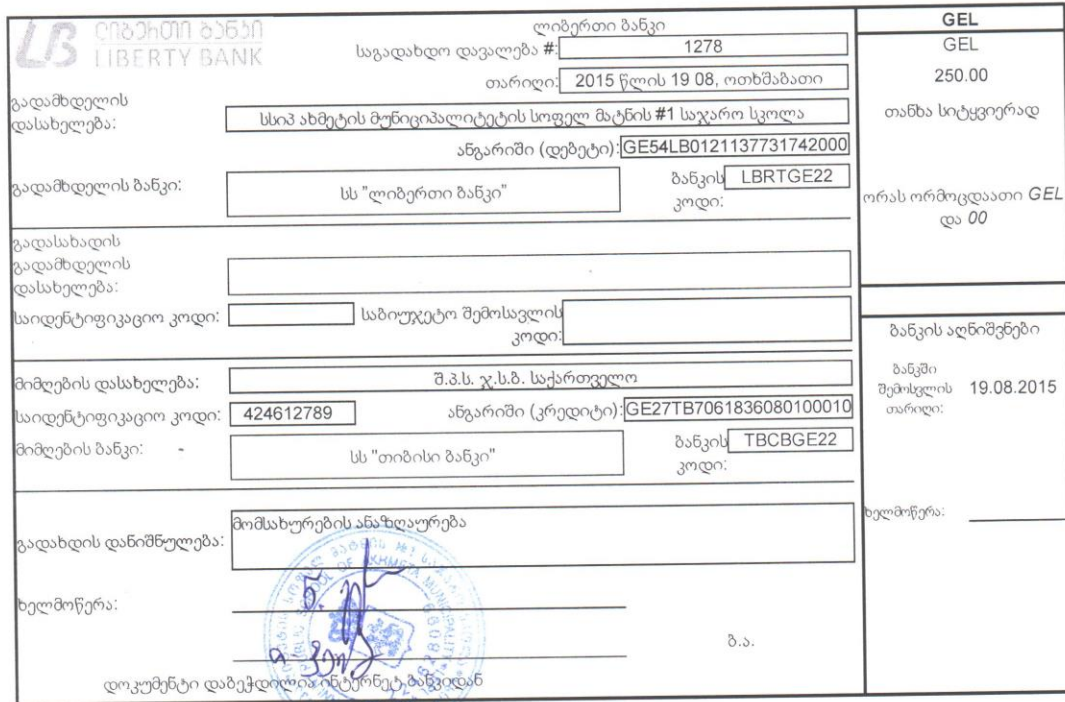 ლიბერთი ბანკი
LIBERTY BANK
ლიბერთი ბანკი
საგადახდო დავალება #: 1278
თარიღი: 2015 წლის 19 08, ოთხშაბათი
გადამხდელის დასახელება: სსიპ ახმეტის მუნიციპალიტეტის სოფელ მატნის #1 საჯარო სკოლა
ანგარიში (დებეტი): GE54LB0121137731742000
გადამხდელის ბანკი: სს "ლიბერთი ბანკი" ბანკის კოდი: LBRTGE22
გადასახადის
გადამხდელის
დასახელება:
საიდენტიფიკაციო კოდი: საბიუჯეტო შემოსავლის კოდი:
მიმღების დასახელება: შ.პ.ს. ჯ.ს.გ. საქართველო
საიდენტიფიკაციო კოდი: 424612789 ანგარიში (კრედიტი): GE27TB7061836080100010
მიმღების ბანკი: - სს "თიბისი ბანკი" ბანკის კოდი: TBCBGE22
გადახდის დანიშნულება: მომსახურების ანაზღაურება
ხელმოწერა:
ბ.ა.
დოკუმენტი დაბეჭდილია ინტერნეტ ბანკიდან
GEL
GEL
250.00
თანხა სიტყვიერად
ორას ორმოცდაათი GEL
და 00
ბანკის აღნიშვნები
ბანკში
შემოსვლის 19.08.2015
თარიღი:
ხელმოწერა: